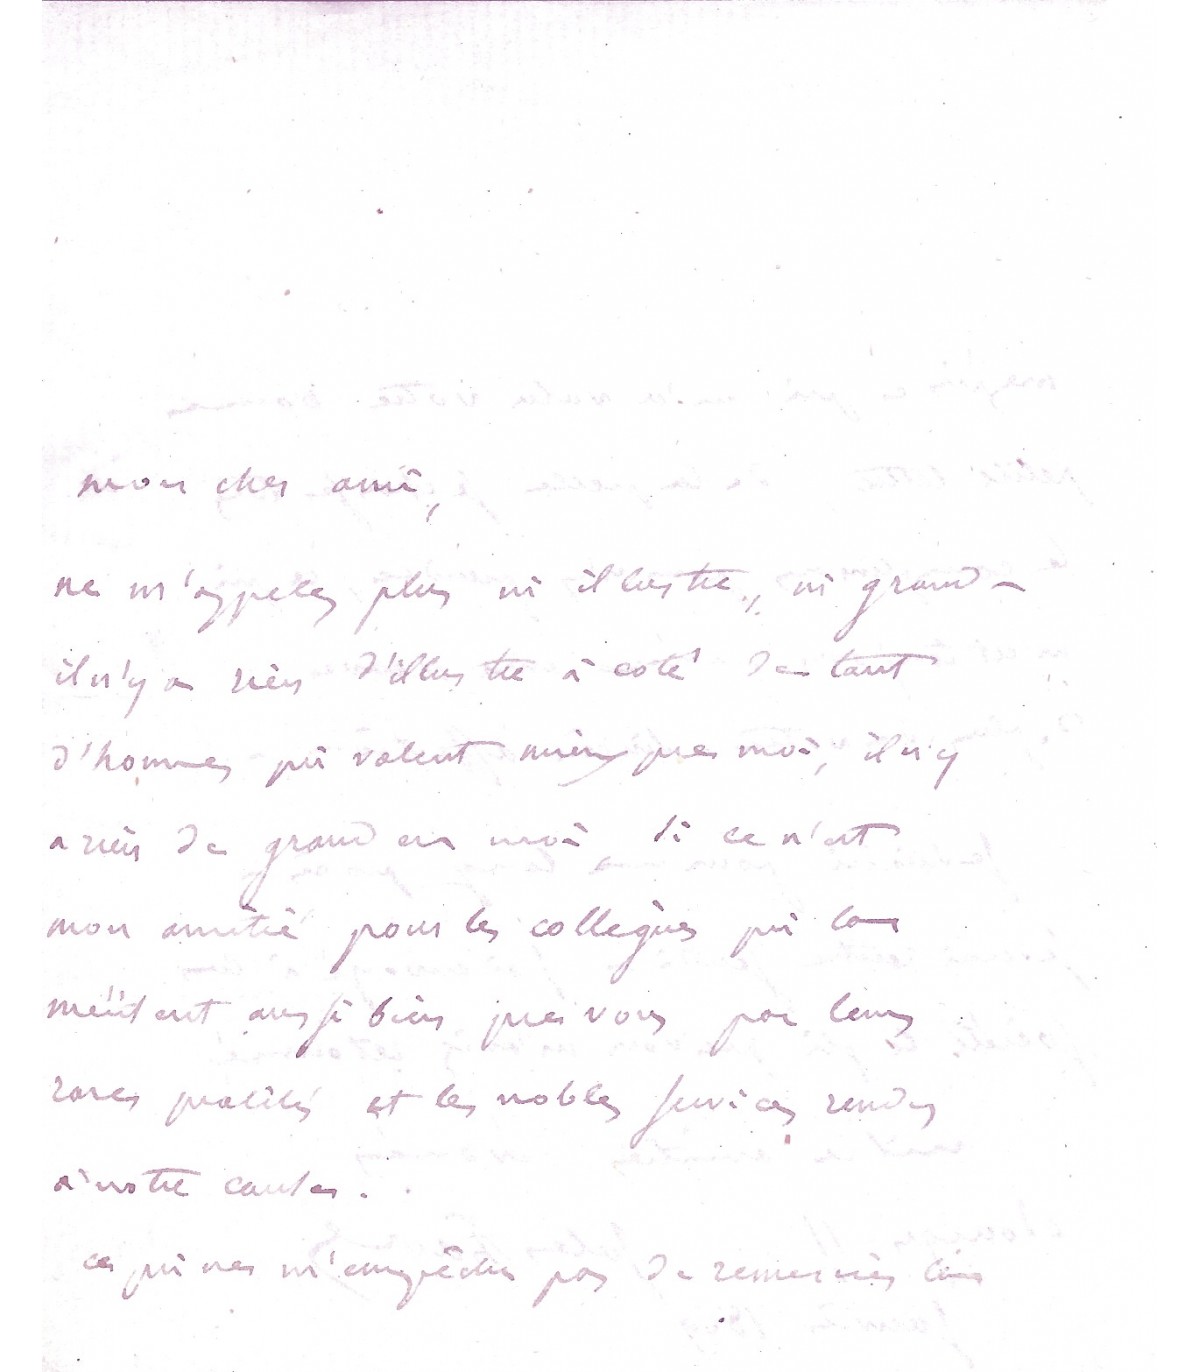 mon cher ami,
ne m'appelez plus ni illustre, ni grand -
il n'y a rien d'illustre à coté de tant
d'hommes qui valent mieux que moi, il n'y
a rien de grand en moi si ce n'est
mon amitié pour les collègues qui la
méritent aussi bien que vous par leurs
rares qualités et les nobles services rendus
à notre cause.
ce qui ne m'empêche pas de remercier